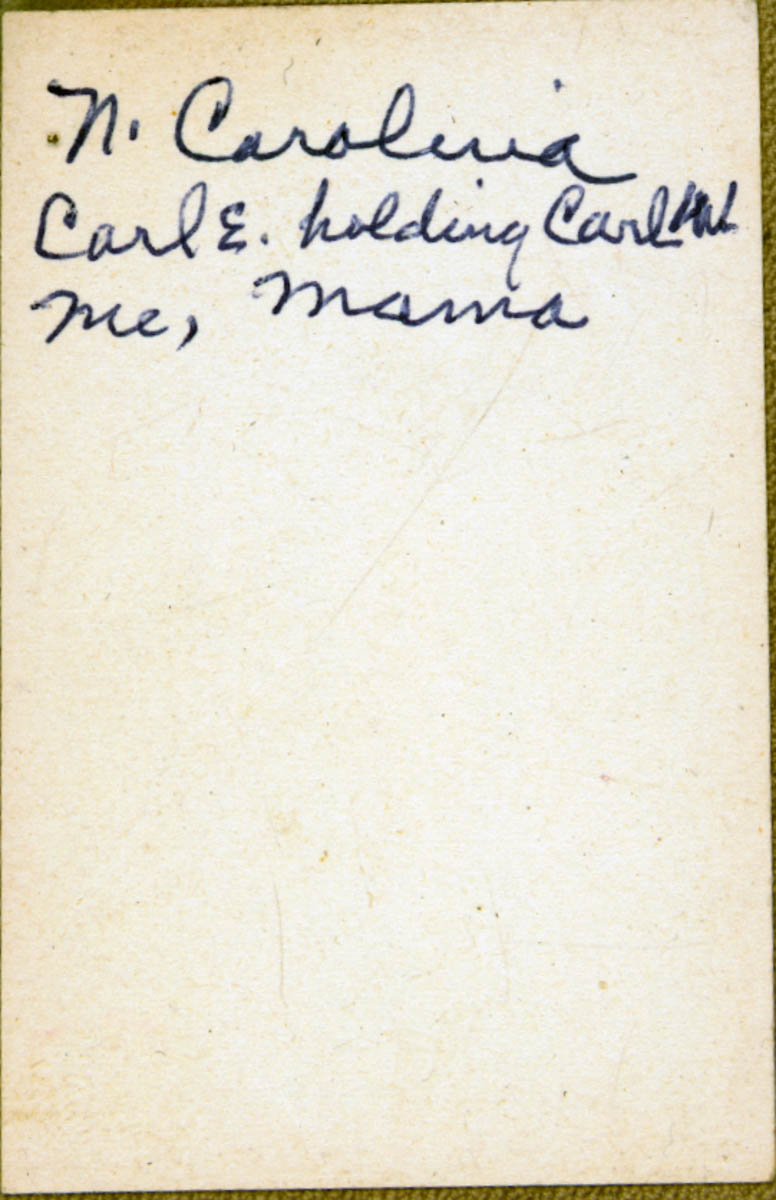 N. Carolina
Carl E. holding Carl
Me, Mama